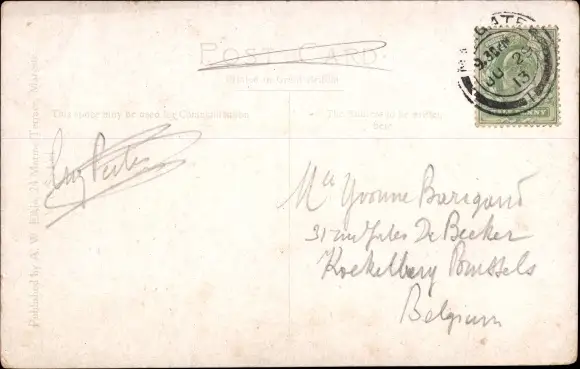 POST CARD
Printed in Great Britain
This space may be used for Communication
The Address to be written
here
MARGATE
9.30 PM
JU 2
13
Mlle Yvonne Barigand
31 rue Jules De Becker
Koekelberg Brussels
Belgium
Published by A. W.
Margate